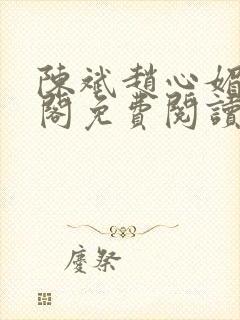 陳斌趙心媚
閣免費閱讀
慶祭